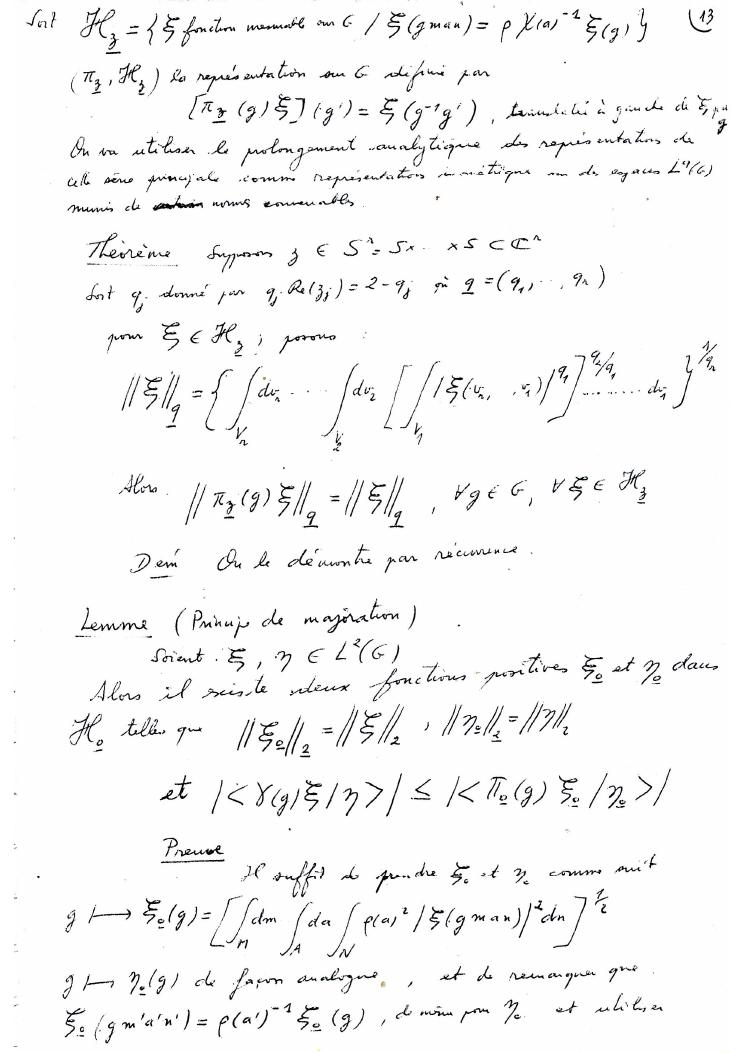 13
Soit ℋ_z = { ξ fonction mesurable sur G / ξ(gman) = ρ χ(a)^{-1} ξ(g) }
(π_z, ℋ_z) la représentation sur G définie par
[π_z(g)ξ](g') = ξ(g^{-1}g') , translatée à gauche de ξ par g
On va utiliser le prolongement analytique des représentations de
cette série principale comme représentation isométrique sur des espaces L^q(G)
munis de normes convenables.
Théorème Supposons z ∈ S^r = S x ... x S ⊂ ℂ^r
Soit q_j donné par q_j Re(z_j) = 2 - q_j où q = (q_1, ..., q_r)
pour ξ ∈ ℋ_z ; posons :
||ξ||_q = { ∫_{V_r} dv_r .... ∫_{V_2} dv_2 [ ∫_{V_1} |ξ(v_r, .. v_1)|^{q_1} ]^{q_2/q_1} ........ dv_1 }^{1/q_r}
Alors. || π_z(g) ξ ||_q = || ξ ||_q , ∀g ∈ G, ∀ξ ∈ ℋ_z
Dém On le démontre par récurrence.
Lemme (Principe de majoration)
Soient ξ, η ∈ L²(G)
Alors il existe deux fonctions positives ξ_0 et η_0 dans
ℋ_0 telles que ||ξ_0||_2 = ||ξ||_2 , ||η_0||_2 = ||η||_2
et |<γ(g)ξ/η>| ≤ |<π_0(g) ξ_0/η_0>|
Preuve
Il suffit de prendre ξ_0 et η_0 comme suit
g ↦ ξ_0(g) = [ ∫_M dm ∫_A da ∫_N ρ(a)² |ξ(gman)|² dn ]^{1/2}
g ↦ η_0(g) de façon analogue , et de remarquer que
ξ_0(gm'a'n') = ρ(a')^{-1} ξ_0(g) , de même pour η_0 et utiliser